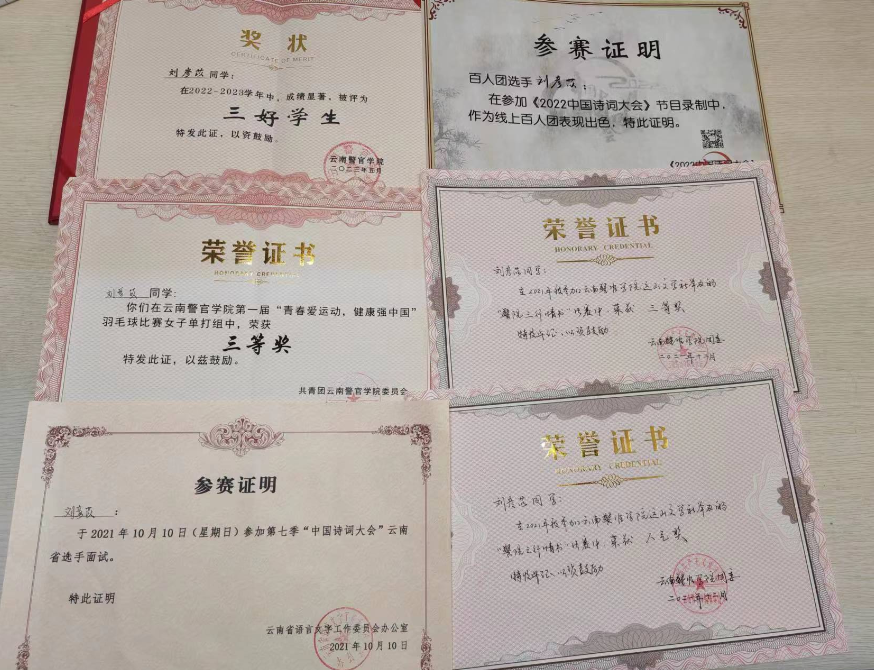 奖状
CERTIFICATE OF MERIT
刘彦苡 同学：
在2022-2023学年中，成绩显著，被评为
三好学生
特发此证，以资鼓励。
云南警官学院
二〇二三年五月
参赛证明
百人团选手刘彦苡：
在参加《2022中国诗词大会》节目录制中，
作为线上百人团表现出色，特此证明。
《2022中国诗词大会》
荣誉证书
HONORARY CREDENTIAL
刘彦苡 同学：
你们在云南警官学院第一届“青春爱运动，健康强中国”
羽毛球比赛女子单打组中，荣获
三等奖
特发此证，以兹鼓励。
共青团云南警官学院委员会
荣誉证书
HONORARY CREDENTIAL
刘彦苡同学：
在2021年秋参加云南警官学院远山文学社举办的
“警院三行情书”比赛中，荣获 三等奖
特发此证，以资鼓励
云南警官学院团委
参赛证明
刘彦苡：
于2021年10月10日（星期日）参加第七季“中国诗词大会”云南
省选手面试。
特此证明
云南省语言文字工作委员会办公室
2021年10月10日
荣誉证书
HONORARY CREDENTIAL
刘彦苡同学：
在2021年秋参加云南警官学院远山文学社举办的
“警院三行情书”比赛中，荣获 人气奖
特发此证，以资鼓励
云南警官学院团委